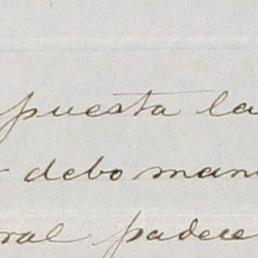 puesta la
debo man
ral padece